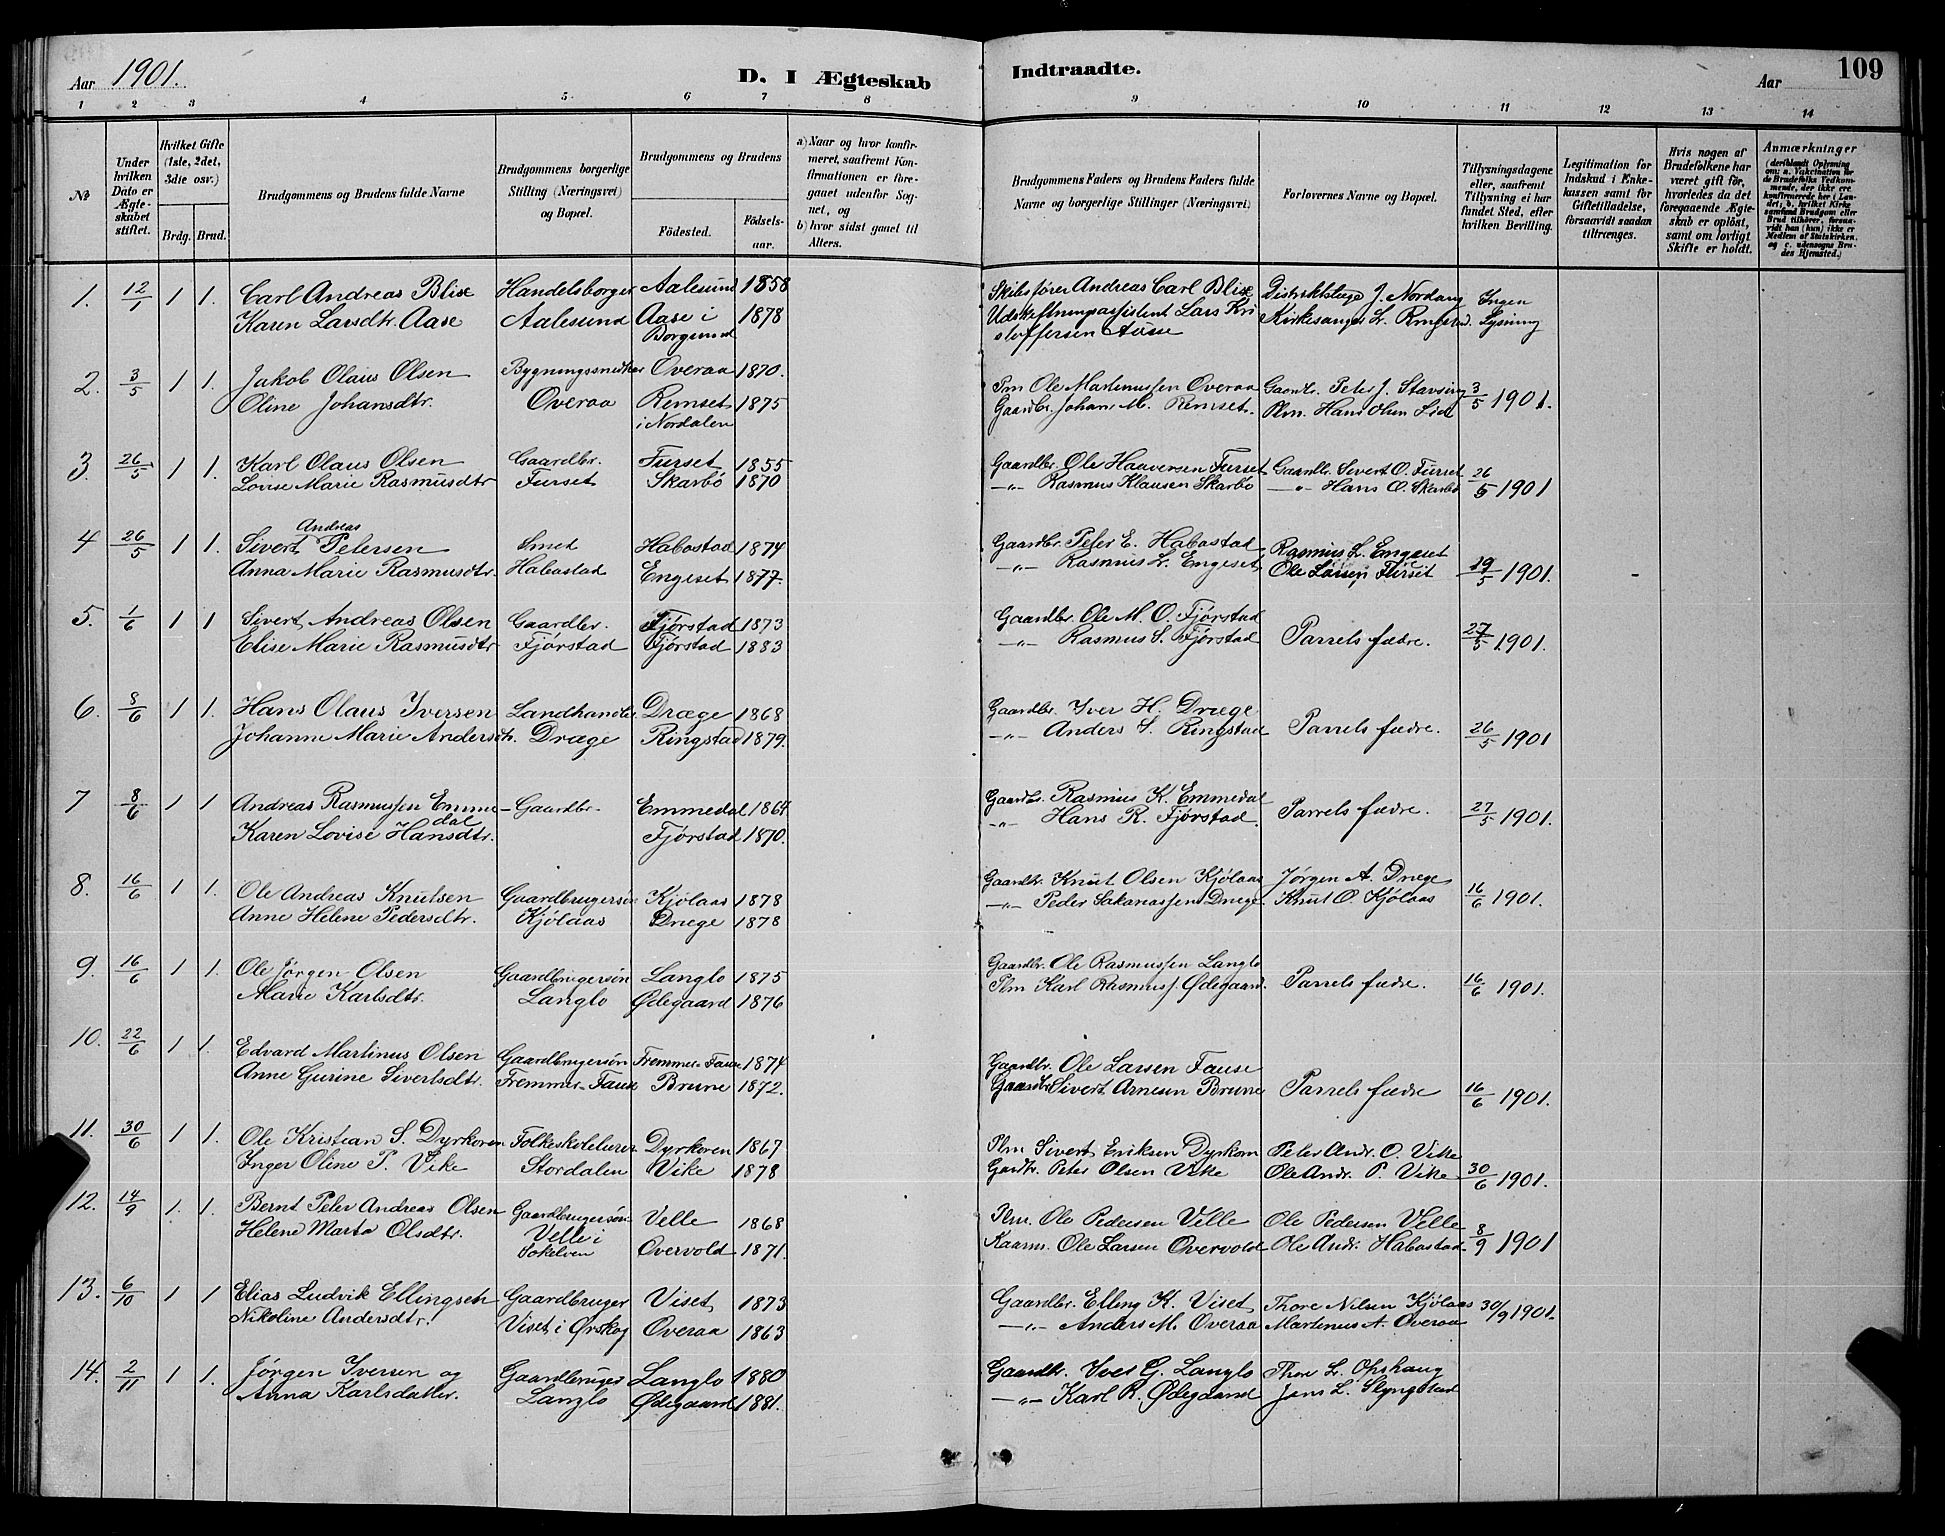 Aar 1901.
D. I Ægteskab
Indtraadte.
Aar
109
1 2 3 4 5 6 7 8 9 10 11 12 13 14
№
Under hvilken Dato er Ægteskabet stiftet.
Hvilket Gifte (1ste, 2det, 3die osv.)
Brdg. Brud.
Brudgommens og Brudens fulde Navne
Brudgommens borgerlige Stilling (Næringsvei) og Bopæl.
Brudgommens og Brudens
Fødested.
Fødselsaar.
a) Naar og hvor konfirmeret, saafremt Konfirmationen er foregaaet udenfor Sognet, og
b) hvor sidst gaaet til Alters.
Brudgommens Faders og Brudens Faders fulde Navne og borgerlige Stillinger (Næringsvei)
Forlovernes Navne og Bopæl.
Tillysningsdagene eller, saafremt Tillysning ei har fundet Sted, efter hvilken Bevilling.
Legitimation for Indskud i Enkekassen samt for Giftetilladelse, forsaavidt saadan tiltrænges.
Hvis nogen af Brudefolkene har været gift før, hvorledes da det foregaaende Ægteskab er opløst, samt om lovligt Skifte er holdt.
Anmærkninger
(deriblandt Oplysning om: a. Vakcination for de Brudefolks Vedkommende, der ikke ere konfirmerede her i Landet; b. hvilket Kirkesamfund Brudgom eller Brud tilhører, forsaavidt han (hun) ikke er Medlem af Statskirken, og c. udensogns Brudes Hjemsted.)
1. 12/1 1 1. Carl Andreas Blix Handelsborger Aalesund 1858 Andreas Carl Blix Distriktslæge J. Nordang Ingen
Karen Larsdtr. Aase Aalesund Aase i 1878 Udskiftningsassistent Lars Kri Kirkesanger L. Ringstad. Lysning
Borgund stoffersen Aase
2. 3/5 1 1. Jakob Olaus Olsen Bygningssnedker Overaa 1870. Pm Ole Martinussen Overaa Gaardbr. Peter J. Stavseng 3/5 1901.
Oline Johansdtr. Overaa Remset 1875 Gaardbr. Johan M. Remset. Plm. Hans Olsen
i Nordalen
3. 26/5 1 1. Karl Olaus Olsen Gaardbr. Furset 1855 Gaardbr. Ole Haaversen Furset Gaardbr. Sivert O. Furset 26/5 1901
Lovise Marie Rasmusdtr Furset Skarbø 1870 —"— Rasmus Klausen Skarbø —"— Hans O. Skarbø
Andreas
4 26/5 1 1. Sivert Petersen Smed Habostad 1874 Gaardbr. Peter E. Habostad Rasmus L. Engeset
Anna Marie Rasmusdtr. Habostad Engeset 1877. —"— Rasmus L. Engeset Ole Larsen Furset 19/5 1901.
5. 1/6 1 1 Sivert Andreas Olsen Gaardbr. Fjørstad 1873 Gaardbr. Ole M. O. Fjørstad
Elise Marie Rasmusdtr Fjørstad Fjørstad 1883 —"— Rasmus S. Fjørstad Parrets fædre. 27/5 1901.
6. 8/6 1 1. Hans Olaus Iversen Landhandler. Drage 1868 Gaardbr. Iver H. Drage
Johanne Marie Andersdtr. Drage Ringstad 1879. —"— Anders S. Ringstad Parrets fædre. 26/5 1901
7 8/6 1 1 Andreas Rasmussen Emme- Gaardbr. Emmedal 1864 Gaardbr. Rasmus K. Emmedal Parrets fædre. 27/5 1901.
dal
Karen Lovise Hansdtr. Fjørstad 1870. —"— Hans R. Fjørstad.
8. 16/6 1 1. Ole Andreas Knutsen Gaardbrugersøn Kjølaas 1878 Gaardbr. Knut Olsen Kjølaas Jørgen A. Drage 16/6 1901.
Anne Helene Pedersdtr. Kjølaas Drage 1878 —"— Peder Sakariassen Drage Knut O. Kjølaas
9. 16/6 1 1. Ole Jørgen Olsen Gaardbrugersøn Langlo 1875 Gaardbr. Ole Rasmussen Langlo
Marie Karlsdtr. Langlo Ødegaard 1876 Plm Karl Rasmuss. Ødegaard. Parrets fædre. 16/6 1901.
10. 22/6 1 1. Edvard Martinus Olsen Gaardbrugersøn Fremmer-Fause 1874 Gaardbr. Ole Larsen Fause
Anne Gurine Sivertsdtr. Fremmer-Fause Brune 1872. Gaardbr Sivert Arnesen Brune Parrets fædre 16/6 1901.
11. 30/6 1 1. Ole Kristian S. Dyrkoren Folkeskolelærer Dyrkoren 1867 Plm Sivert Eriksen Dyrkorn Peter Andr. O. Vike
Inger Oline P. Vike Stordalen Vike 1878 Gardbr. Peter Olsen Vike Ole Andr. P. Vike 30/6 1901.
12. 14/9 1. 1. Bernt Peter Andreas Olsen Gaardbrugersøn Velle 1868 Plm. Ole Pedersen Velle Ole Pedersen Velle 8/9 1901
Helene Marta Olsdtr. Velle i Overvold 1871. Kaarm. Ole Larsen Overvold Ole Andr. Habostad
Sokelven
13. 6/10 1 1 Elias Ludvik Ellingseth Gaardbruger Viset 1873 Gaardbr. Elling K. Viset Thore Nilsen Kjølaas 30/9 1901.
Nikoline Andersdtr. Viset i Ørskog Overaa 1863 —"— Anders M. Overaa Martinus A. Overaa
14. 2/11 1 1. Jørgen Iversen og Gaardbruger Langlo 1880 Gaardbr. Iver G. Langlo Thore L. Opshaug
Anna Karlsdatter. Langlo Ødegaard 1881. —"— Karl R. Ødegaard Jens L. Slyngstad